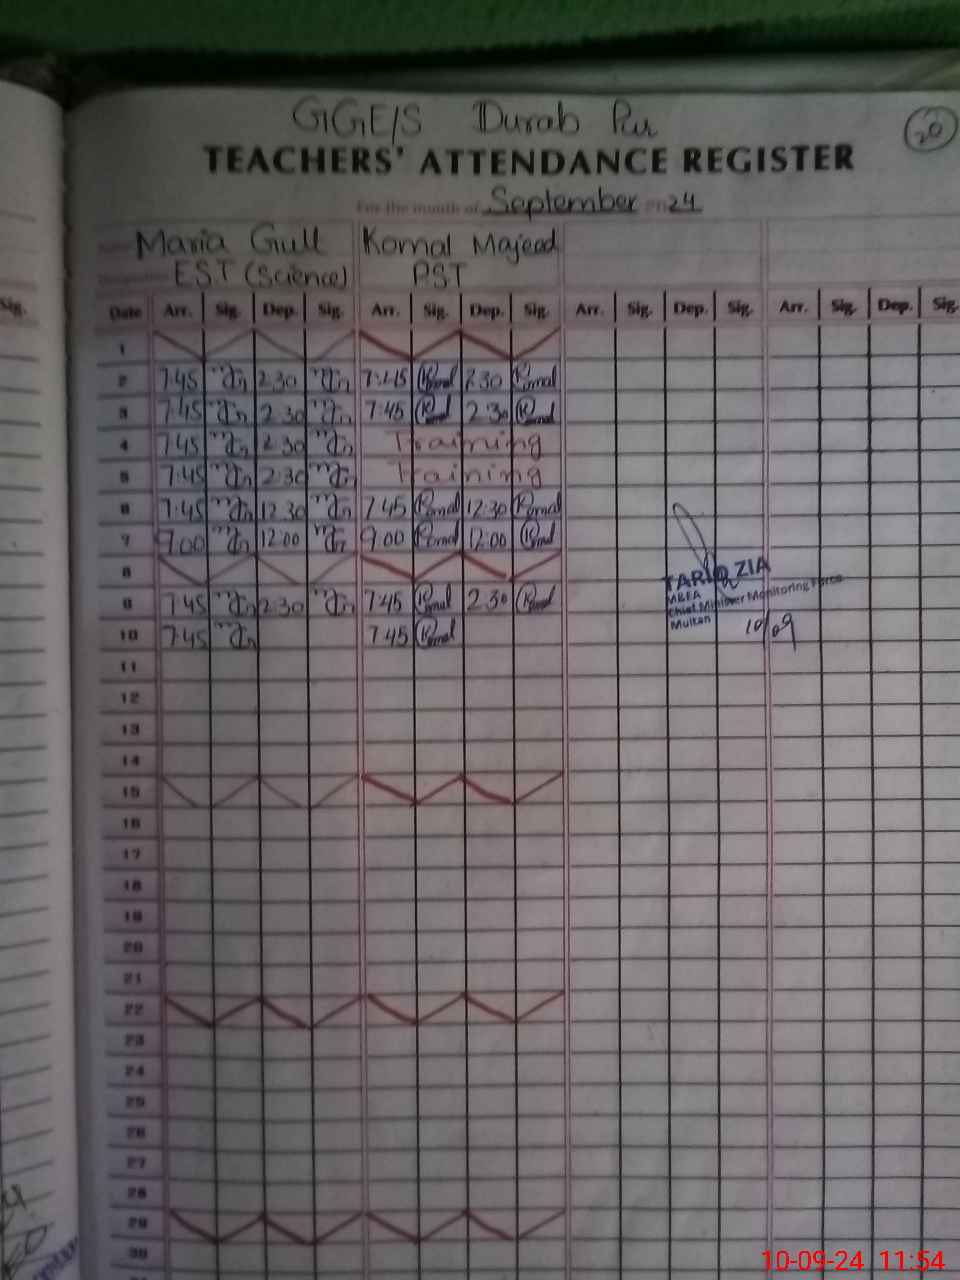 GGE/S Durab Pur
20
TEACHERS' ATTENDANCE REGISTER
For the month of September 24
Maria Gull Komal Majeed
EST (Science) PST
Sig. Date Arr. Sig. Dep. Sig. Arr. Sig. Dep. Sig. Arr. Sig. Dep. Sig. Arr. Sig. Dep. Sig.
1
2 7:45 2:30 7:45 Komal 2:30 Komal
3 7:45 2:30 7:45 2:30 Komal
4 7:45 2:30 Training
5 7:45 2:30 Training
6 7:45 12:30 7:45 Komal 12:30 Komal
7 9:00 12:00 9:00 Komal 12:00 Komal
8
TARIQ ZIA
MEA
Chief Minister Monitoring Force
Multan
10/09
9 7:45 2:30 7:45 Komal 2:30 Komal
10 7:45 7:45 Komal
11
12
13
14
15
16
17
18
19
20
21
22
23
24
25
26
27
28
29
30
10-09-24 11:54